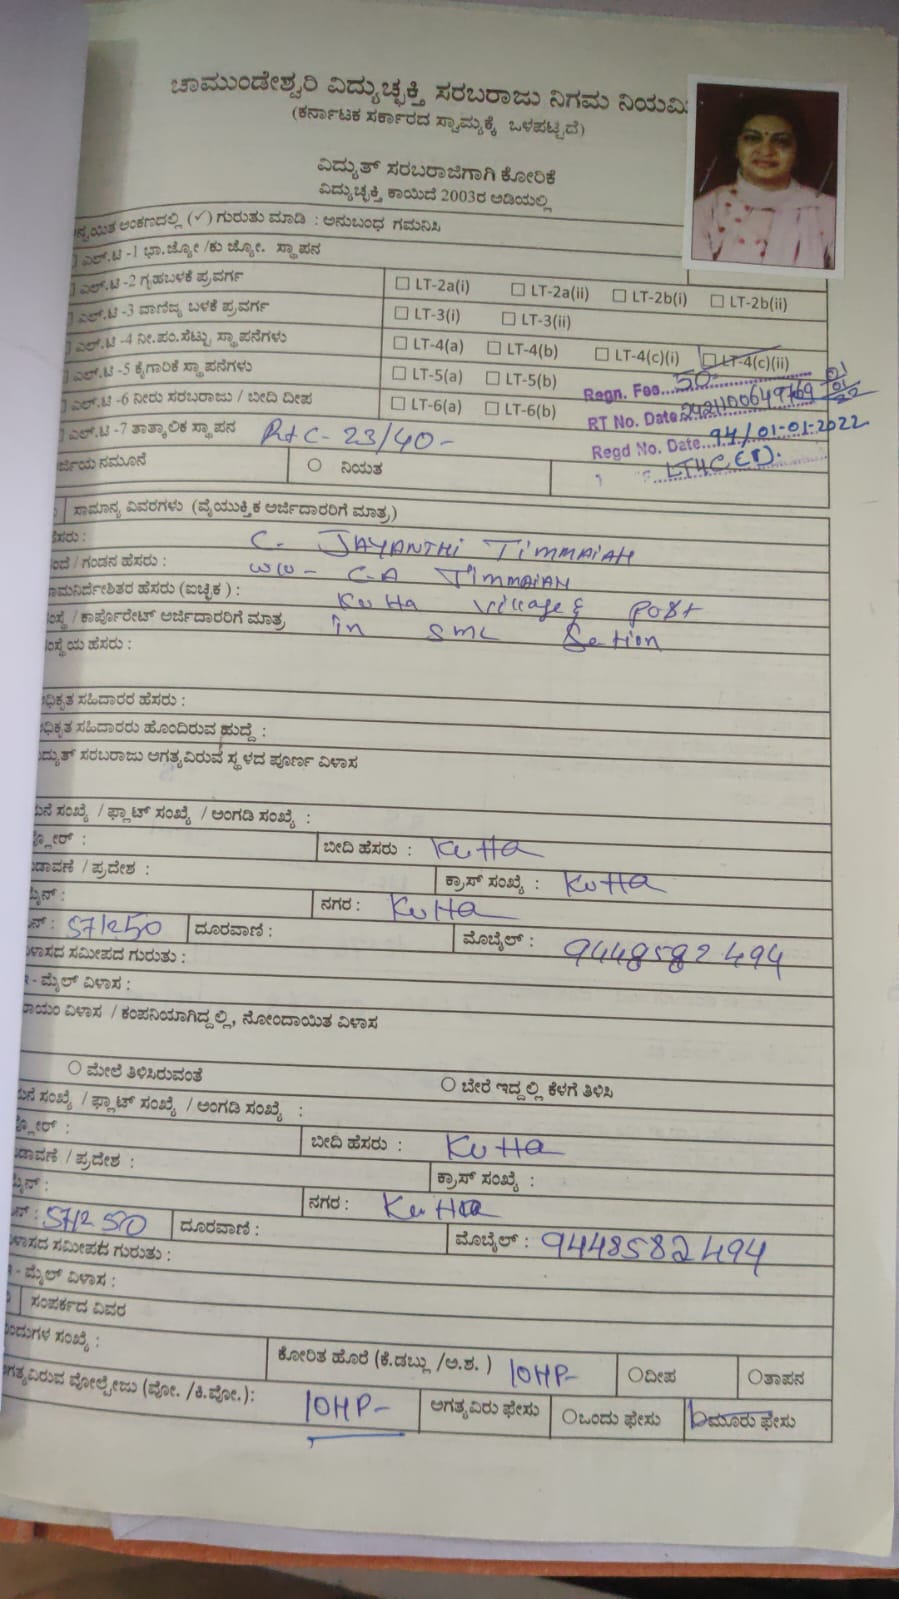 ಚಾಮುಂಡೇಶ್ವರಿ ವಿದ್ಯುಚ್ಛಕ್ತಿ ಸರಬರಾಜು ನಿಗಮ ನಿಯಮಿ
(ಕರ್ನಾಟಕ ಸರ್ಕಾರದ ಸ್ವಾಮ್ಯಕ್ಕೆ ಒಳಪಟ್ಟಿದೆ)
ವಿದ್ಯುತ್ ಸರಬರಾಜಿಗಾಗಿ ಕೋರಿಕೆ
ವಿದ್ಯುಚ್ಛಕ್ತಿ ಕಾಯಿದೆ 2003ರ ಅಡಿಯಲ್ಲಿ
ನ್ವಯಿತ ಅಂಕಣದಲ್ಲಿ (✓) ಗುರುತು ಮಾಡಿ : ಅನುಬಂಧ ಗಮನಿಸಿ
ಎಲ್.ಟಿ -1 ಭಾ.ಜ್ಯೋ /ಕು ಜ್ಯೋ. ಸ್ಥಾಪನ
ಎಲ್.ಟಿ -2 ಗೃಹಬಳಕೆ ಪ್ರವರ್ಗ ☐ LT-2a(i) ☐ LT-2a(ii) ☐ LT-2b(i) ☐ LT-2b(ii)
ಎಲ್.ಟಿ -3 ವಾಣಿಜ್ಯ ಬಳಕೆ ಪ್ರವರ್ಗ ☐ LT-3(i) ☐ LT-3(ii)
ಎಲ್.ಟಿ -4 ನೀ.ಪಂ.ಸೆಟ್ಟು ಸ್ಥಾಪನೆಗಳು ☐ LT-4(a) ☐ LT-4(b) ☐ LT-4(c)(i) ☐ LT-4(c)(ii)
ಎಲ್.ಟಿ -5 ಕೈಗಾರಿಕೆ ಸ್ಥಾಪನೆಗಳು ☐ LT-5(a) ☐ LT-5(b)
Regn. Fee 50
ಎಲ್.ಟಿ -6 ನೀರು ಸರಬರಾಜು / ಬೀದಿ ದೀಪ ☐ LT-6(a) ☐ LT-6(b)
RT No. Date 2421100649769 01/01/22
ಎಲ್.ಟಿ -7 ತಾತ್ಕಾಲಿಕ ಸ್ಥಾಪನ RtC-23/40-
Regd No. Date 94/01-01-2022
ರ್ಜಿಯ ನಮೂನೆ ○ ನಿಯತ
ಸಾಮಾನ್ಯ ವಿವರಗಳು (ವೈಯುಕ್ತಿಕ ಅರ್ಜಿದಾರರಿಗೆ ಮಾತ್ರ)
ಹೆಸರು : C. JAYANTHI TIMMAIAH
ಂದೆ / ಗಂಡನ ಹೆಸರು : w/o - C-A TIMMAIAH
ಾಮನಿರ್ದೇಶಿತರ ಹೆಸರು (ಐಚ್ಛಿಕ) : KuttA village & post
ಂಸ್ಥೆ / ಕಾರ್ಪೊರೇಟ್ ಅರ್ಜಿದಾರರಿಗೆ ಮಾತ್ರ in SML Setion
ಂಸ್ಥೆಯ ಹೆಸರು :
ಧಿಕೃತ ಸಹಿದಾರರ ಹೆಸರು :
ಧಿಕೃತ ಸಹಿದಾರರು ಹೊಂದಿರುವ ಹುದ್ದೆ :
ದ್ಯುತ್ ಸರಬರಾಜು ಅಗತ್ಯವಿರುವ ಸ್ಥಳದ ಪೂರ್ಣ ವಿಳಾಸ
ುನೆ ಸಂಖ್ಯೆ / ಫ್ಲಾಟ್ ಸಂಖ್ಯೆ / ಅಂಗಡಿ ಸಂಖ್ಯೆ :
್ಲೋರ್ : ಬೀದಿ ಹೆಸರು : KuttA
ಡಾವಣೆ / ಪ್ರದೇಶ : ಕ್ರಾಸ್ ಸಂಖ್ಯೆ : KuttA
ೈನ್ : ನಗರ : KuttA
ನ್ : 571250 ದೂರವಾಣಿ : ಮೊಬೈಲ್ : 9448582494
ಿಳಾಸದ ಸಮೀಪದ ಗುರುತು :
- ಮೈಲ್ ವಿಳಾಸ :
ಾಯಂ ವಿಳಾಸ / ಕಂಪನಿಯಾಗಿದ್ದಲ್ಲಿ, ನೋಂದಾಯಿತ ವಿಳಾಸ
○ ಮೇಲೆ ತಿಳಿಸಿರುವಂತೆ ○ ಬೇರೆ ಇದ್ದಲ್ಲಿ ಕೆಳಗೆ ತಿಳಿಸಿ
ುನೆ ಸಂಖ್ಯೆ / ಫ್ಲಾಟ್ ಸಂಖ್ಯೆ / ಅಂಗಡಿ ಸಂಖ್ಯೆ :
್ಲೋರ್ : ಬೀದಿ ಹೆಸರು : KuttA
ಡಾವಣೆ / ಪ್ರದೇಶ : ಕ್ರಾಸ್ ಸಂಖ್ಯೆ :
ೈನ್ : ನಗರ : KuttA
ನ್ : 571250 ದೂರವಾಣಿ : ಮೊಬೈಲ್ : 9448582494
ಿಳಾಸದ ಸಮೀಪದ ಗುರುತು :
- ಮೈಲ್ ವಿಳಾಸ :
ಸಂಪರ್ಕದ ವಿವರ
ಂದುಗಳ ಸಂಖ್ಯೆ : ಕೋರಿತ ಹೊರೆ (ಕೆ.ಡಬ್ಲು /ಅ.ಶ. ) 10HP- ○ದೀಪ ○ತಾಪನ
ಗತ್ಯವಿರುವ ವೋಲ್ಟೇಜು (ವೋ. /ಕಿ.ವೋ.): 10HP- ಅಗತ್ಯವಿರು ಫೇಸು ○ಒಂದು ಫೇಸು ಮೂರು ಫೇಸು